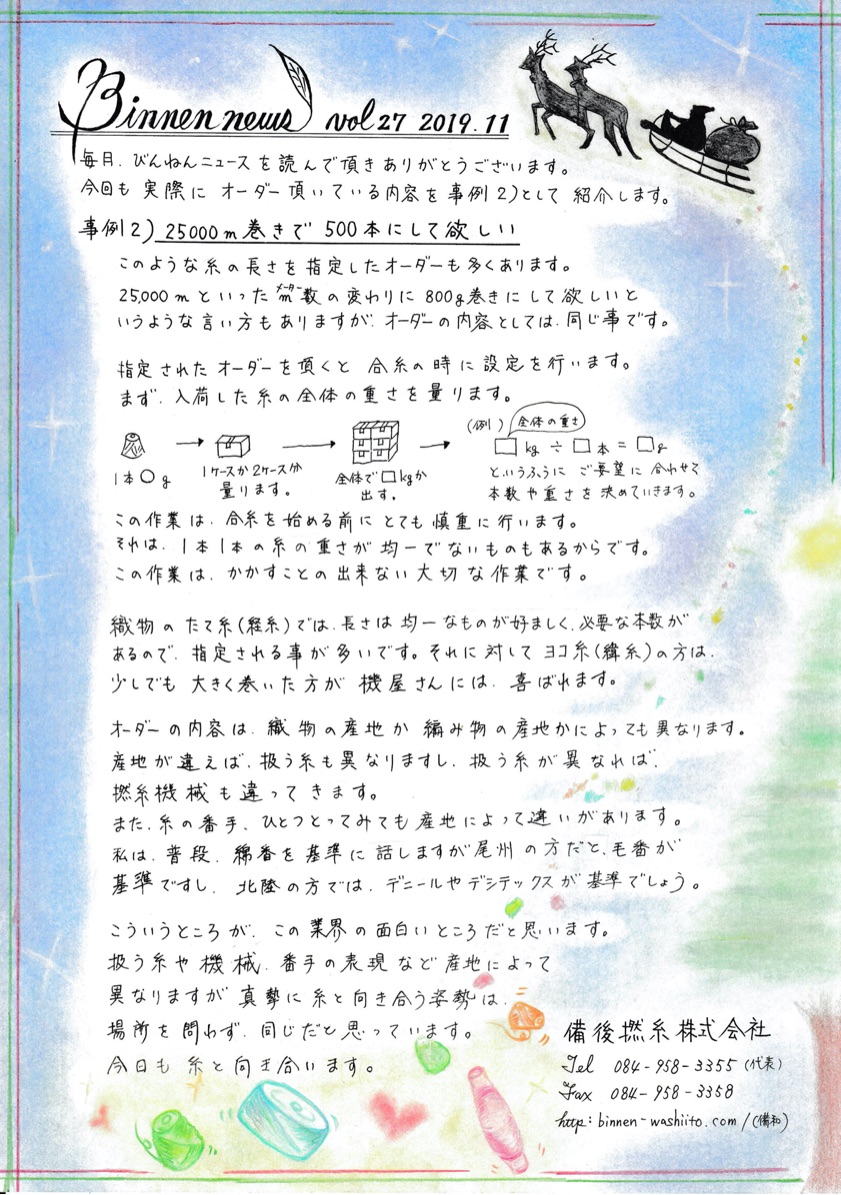 Binnen news vol 27 2019.11
毎月、びんねんニュースを読んで頂きありがとうございます。
今回も 実際に オーダー頂いている内容を 事例2)として 紹介します。
事例2) 25000m巻きで 500本にして欲しい
このような糸の長さを指定したオーダーも多くあります。
メーター
25,000mといったm数の変わりに 800g巻きにして欲しいと
いうような言い方もありますが、オーダーの内容としては、同じ事です。
指定されたオーダーを頂くと 合糸の時に設定を行います。
まず、入荷した糸の全体の重さを量ります。
(例) 全体の重さ
→ → → □kg ÷ □本 = □g
1本○g
1ケースか2ケース分
量ります。
全体で□kgか
出す。
というふうに ご要望に合わせて
本数や重さを決めていきます。
この作業は、合糸を始める前にとても慎重に行います。
それは、1本1本の糸の重さが均一でないものもあるからです。
この作業は、かかすことの出来ない大切な作業です。
織物のたて糸(経糸)では、長さは均一なものが好ましく、必要な本数が
あるので、指定される事が多いです。それに対して ヨコ糸(緯糸)の方は、
少しでも 大きく巻いた方が 機屋さんには、喜ばれます。
オーダーの内容は、織物の産地か 編み物の産地かによっても異なります。
産地が違えば、扱う糸も異なりますし、扱う糸が異なれば、
撚糸機械も違ってきます。
また、糸の番手、ひとつとってみても産地によって違いがあります。
私は、普段、綿番を基準に話しますが尾州の方だと、毛番が
基準ですし、北陸の方では、デニールやデシテックスが基準でしょう。
こういうところが、この業界の面白いところだと思います。
扱う糸や機械、番手の表現など産地によって
異なりますが 真摯に糸と向き合う姿勢は、
場所を問わず、同じだと思っています。
今日も 糸と向き合います。
備後撚糸株式会社
Tel 084-958-3355 (代表)
Fax 084-958-3358
http: binnen-washiito.com/(備和)